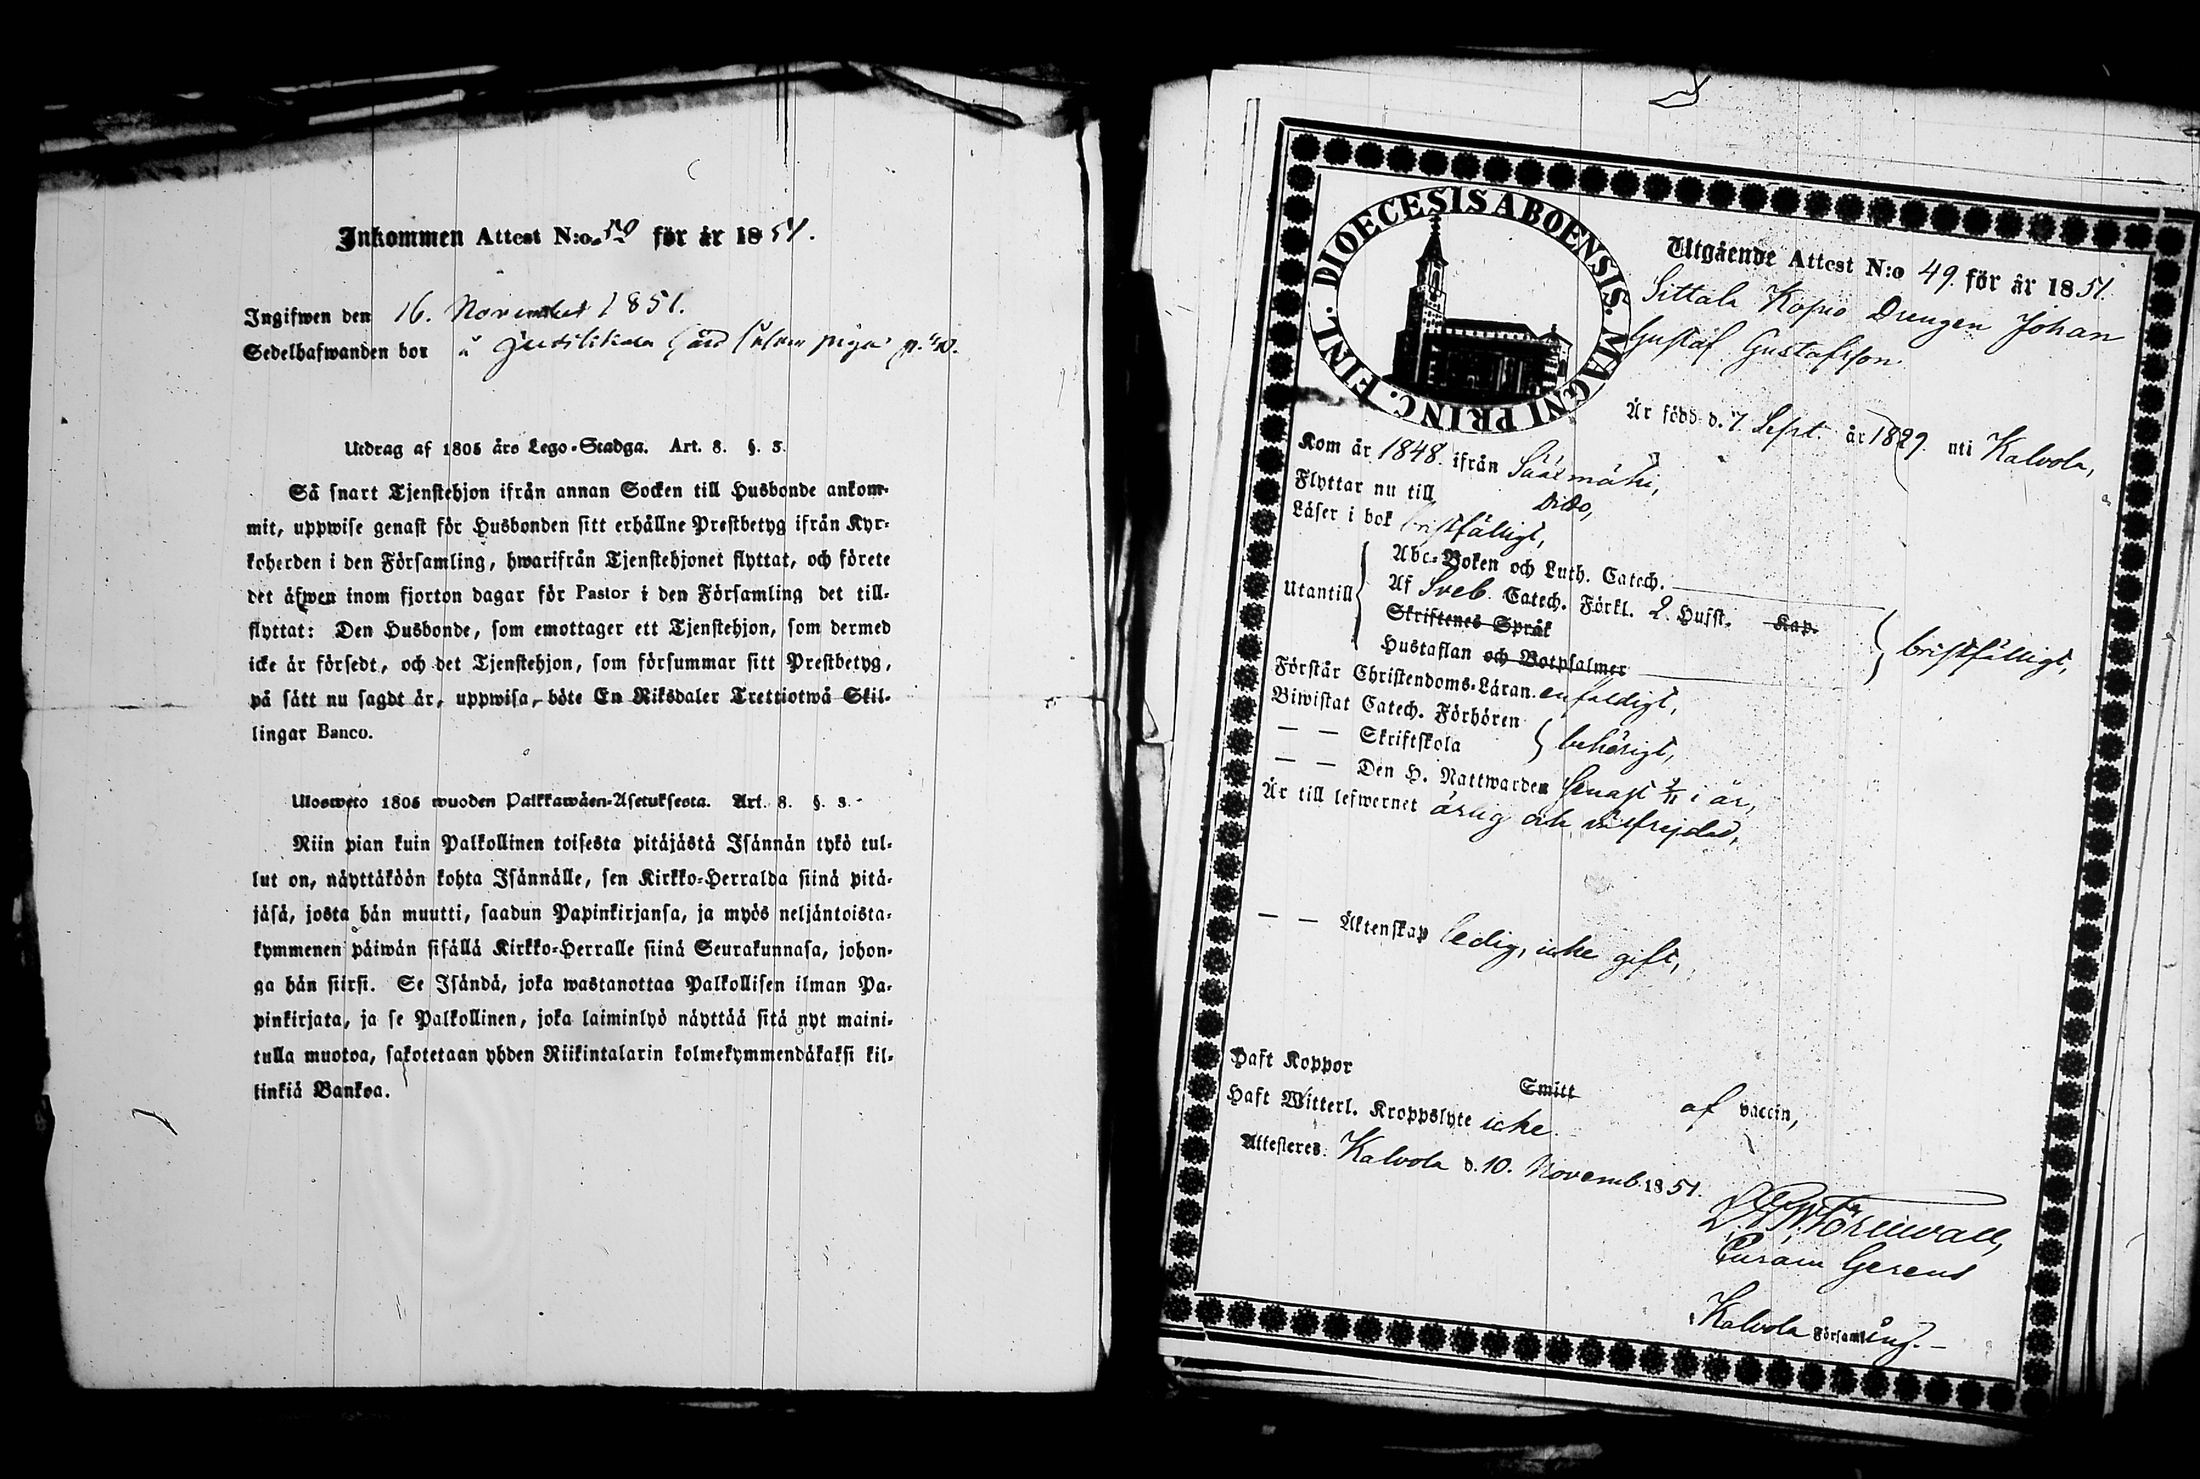 Inkommen Attest N:o 50 för år 1851.
Ingifwen den 16. November 1851.
Sedelhafwanden bor å
Utdrag af 1805 års Lego-Stadga. Art. 8. §. 3.
Så snart Tjenstehjon ifrån annan Socken till Husbonde ankom-
mit, uppwise genast för Husbonden sitt erhållne Prestbetyg ifrån Kyr-
koherden i den Församling, hwarifrån Tjenstehjonet flyttat, och förete
det äfwen inom fjorton dagar för Pastor i den Församling det till-
flyttat: Den Husbonde, som emottager ett Tjenstehjon, som dermed
icke är försedt, och det Tjenstehjon, som försummar sitt Prestbetyg,
på sätt nu sagdt är, uppwisa, böte En Riksdaler Trettiotwå Skil-
lingar Banco.
Ulosweto 1805 wuoden Palkkawäen-Asetuksesta. Art. 8. §. 3.
Niin pian kuin Palkollinen toisesta pitäjästä Isännän tykö tul-
lut on, näyttäköön kohta Isännälle, sen Kirkko-Herralda siinä pitä-
jäsä, josta hän muutti, saadun Papinkirjansa, ja myös neljäntoista-
kymmenen päiwän sisällä Kirkko-Herralle siinä Seurakunnasa, johon-
ga hän siirsi. Se Isändä, joka wastanottaa Palkollisen ilman Pa-
pinkirjata, ja se Palkollinen, joka laiminlyö näyttää sitä nyt maini-
tulla muotoa, sakotetaan yhden Riikintalarin kolmekymmendäkaksi kil-
linkiä Bankoa.
DIOECESIS ABOENSIS. MAGNI PRINC. FINL.
Utgående Attest N:o 49. för år 1851.
Sittala Kopis Drengen Johan
Gustaf Gustafsson.
Är född d. 7 Sept. år 1829. uti Kalvola,
Kom år 1848. ifrån Sääxmäki,
Flyttar nu till Dito,
Läser i bok bristfälligt,
Utantill
Abc-Boken och Luth. Catech.
Af Sveb. Catech. Förkl. 2. Hufst. Kap.
Skriftenes Språk
Hustaflan och Botpsalmer
bristfälligt,
Förstår Christendoms-Läran enfaldigt,
Biwistat Catech. Förhören
— — Skriftskola
behörigt,
— — Den H. Nattwarden senast 2/11 i år,
Är till lefwernet ärlig och välfrejdad,
— — Äktenskap ledig, icke gift,
Haft Koppor Smitt af vaccin,
Haft Witterl. Kroppslyte icke.
Attesteres: Kalvola d. 10. Novemb. 1851.
Curam Gerens
Kalvola Församling.